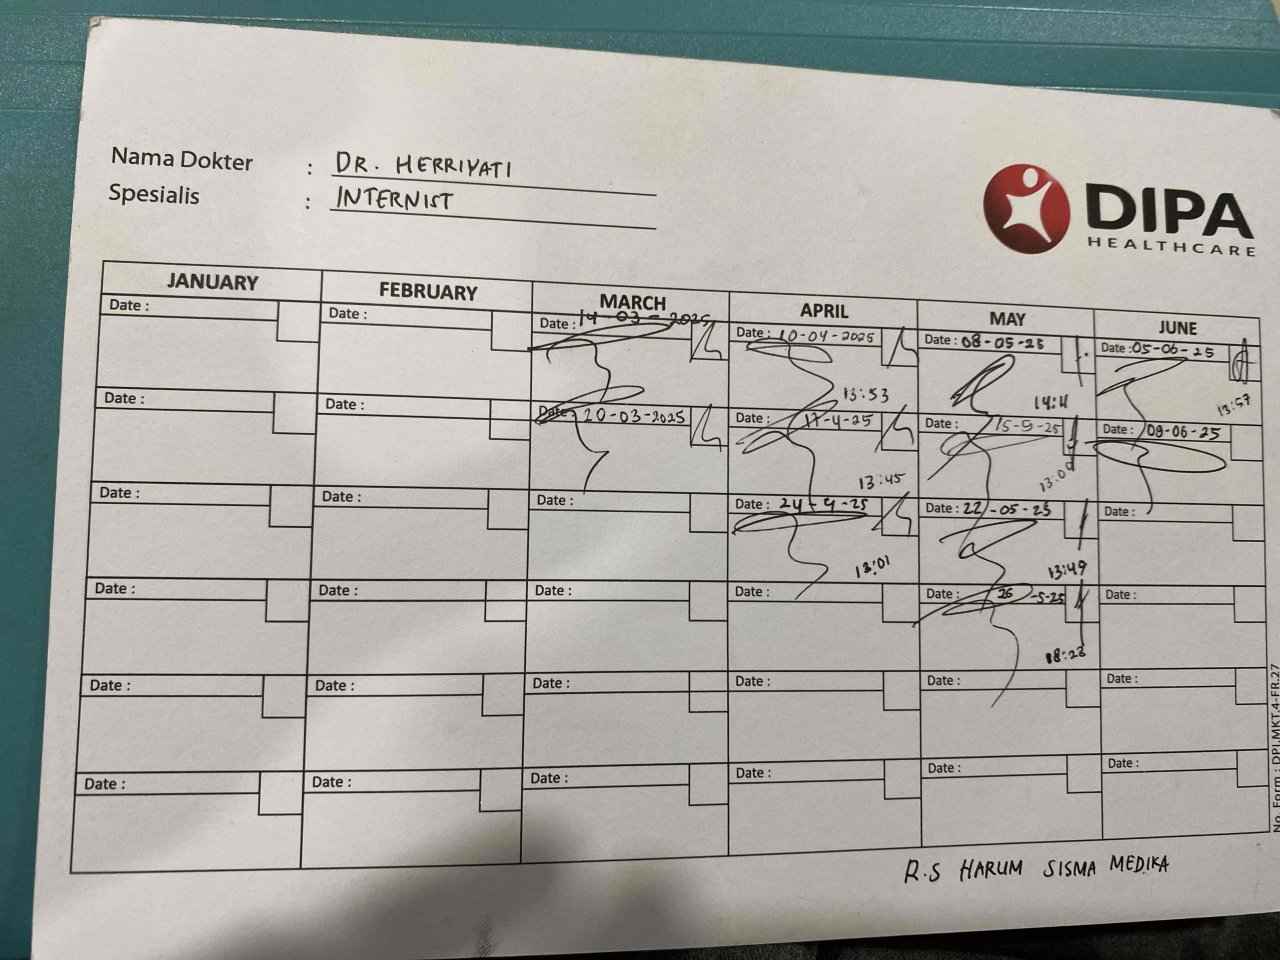 Nama Dokter : DR. HERRIYATI
Spesialis : INTERNIST
DIPA
HEALTHCARE
JANUARY FEBRUARY MARCH APRIL MAY JUNE
Date : Date : Date : 14-03-2025 Date : 10-04-2025 Date : 08-05-25 Date : 05-06-25
13:53 14:11 13:57
Date : Date : Date : 20-03-2025 Date : 17-4-25 Date : 15-5-25 Date : 09-06-25
13:45 13:09
Date : Date : Date : Date : 24-4-25 Date : 22-05-25 Date :
13:01 13:49
Date : Date : Date : Date : Date : 26-5-25 Date :
18:28
Date : Date : Date : Date : Date : Date :
Date : Date : Date : Date : Date : Date :
No. Form : DPI.MKT.4-FR.27
R.S HARUM SISMA MEDIKA